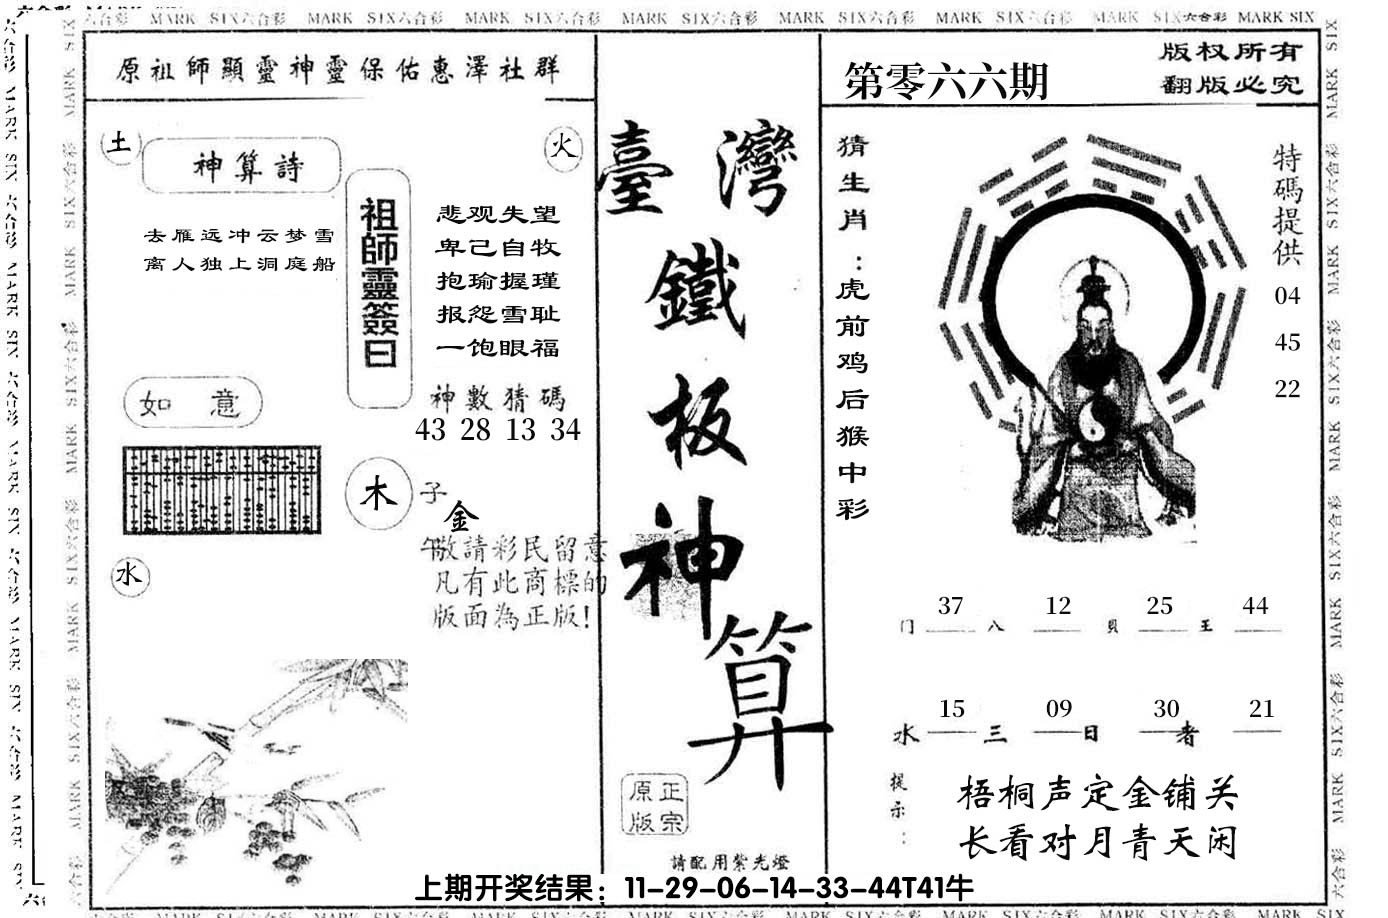 六合彩 MARK SIX六合彩 MARK SIX六合彩 MARK SIX六合彩 MARK SIX六合彩 MARK SIX六合彩 MARK SIX六合彩 MARK SIX六合彩 MARK SIX
原祖師顯靈神靈保佑惠澤社群
土
神算詩
火
去雁远冲云梦雪
离人独上洞庭船
祖師靈簽曰
悲观失望
卑己自牧
抱瑜握瑾
报怨雪耻
一饱眼福
如 意
神數猜碼
43 28 13 34
木
子
金
午敬請彩民留意
凡有此商標的
版面為正版!
水
臺灣
鐵
板
神
算
正宗
原版
請配用紫光燈
第零六六期
版权所有
翻版必究
猜生肖:虎前鸡后猴中彩
特碼提供
04
45
22
37 12 25 44
门 八 貝 王
15 09 30 21
水 三 日 者
提示:
梧桐声定金铺关
长看对月青天闲
上期开奖结果：11-29-06-14-33-44T41牛